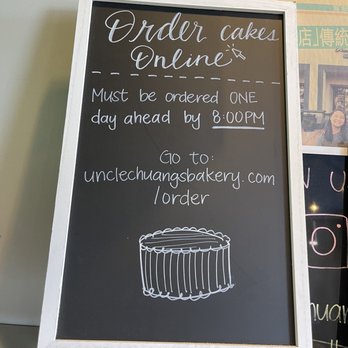 Order cakes
Online
Must be ordered ONE
day ahead by 8:00PM
Go to:
unclechuangsbakery.com
/order
店」傳統